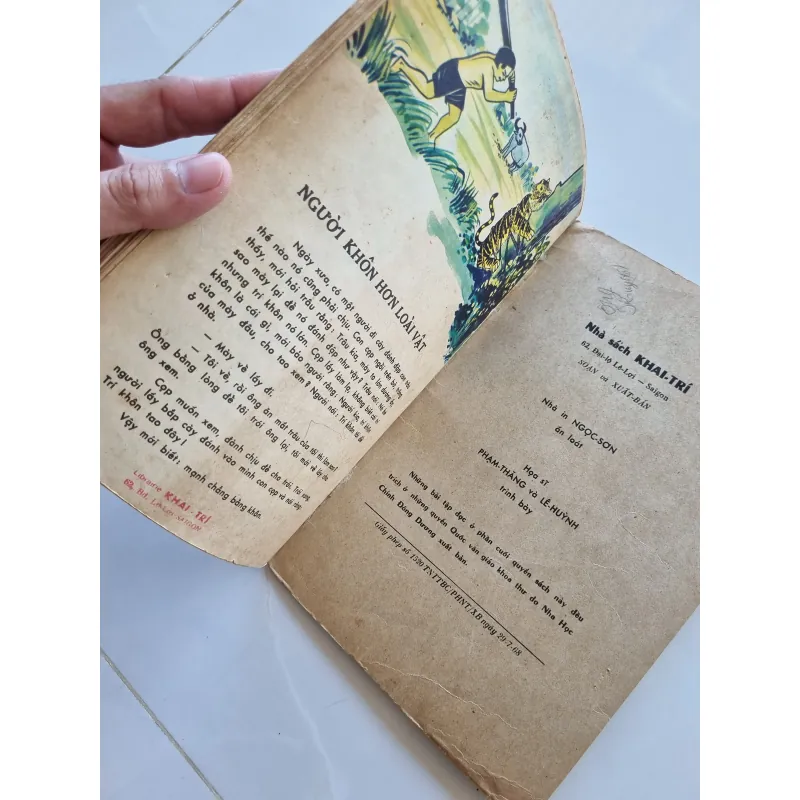 NGƯỜI KHÔN HƠN LOÀI VẬT
Ngày xưa, có một người đi cày đánh đập con trâu,
thế nào nó cũng phải chịu. Con cọp ngồi trên bờ, trông
thấy, mới hỏi trâu rằng: Trâu kia, mày to lớn dường ấy,
sao mày lại để nó đánh đập như vậy? Trâu nói:
nhưng trí khôn nó lớn. Cọp lấy làm lạ, không biết cái trí
khôn là cái gì, mới bảo người rằng: Người kia, trí khôn
của mày đâu, cho tao xem? Người nói: Trí khôn tôi để
ở nhà.
— Mày về lấy đi.
— Tôi về, rồi ông ăn mất trâu của tôi thì làm sao?
Ông bằng lòng để tôi trói ông lại, tôi mới về lấy cho
ông xem.
Cọp muốn xem, đành chịu để cho trói. Trói xong,
người lấy bắp cày đánh vào mình con cọp và nói rằng:
Trí khôn tao đây!
Vậy mới biết: mạnh chẳng bằng khôn.
Librairie KHAI-TRÍ
62, Bd. Lê-Lợi SAIGON
Nhà sách KHAI-TRÍ
62, Đại-lộ Lê-Lợi — Saigon
SOẠN và XUẤT-BẢN
Nhà in NGỌC-SƠN
ấn loát
Họa sĩ
PHẠM-THĂNG và LÊ-HUỲNH
trình bày
Những bài tập đọc ở phần cuối quyển sách này đều
trích ở những quyển Quốc văn giáo khoa thư do Nha Học
Chính Đông Dương xuất bản.
Giấy phép số 1590/TNTTBC/PHNT/XB ngày 29-7-68